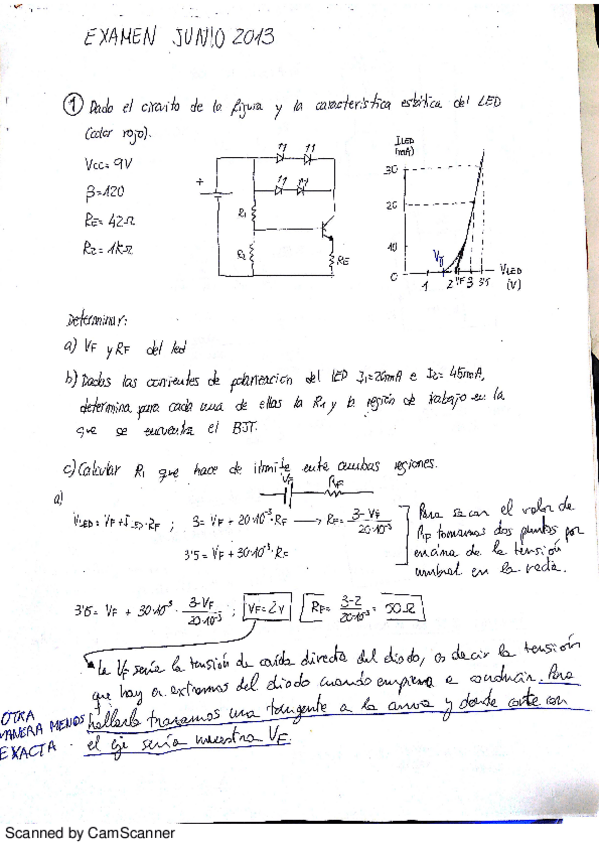 EXAMEN JUNIO 2013
① Dado el circuito de la figura y la característica estática del LED
(color rojo).
Vcc = 9V
β = 120
RE = 42Ω
R2 = 1kΩ
+
R1
RE
ILED
(mA)
30
20
10
0
Vγ
1 2 VF 3 3'5
VLED
(V)
Determinar:
a) VF y RF del led
b) Dadas las corrientes de polarización del LED I1=26mA e I2= 45mA,
determina para cada una de ellas la R1 y la región de trabajo en la
que se encuentra el BJT.
c) Calcular R1 que hace de límite entre ambas regiones.
VF RF
a)
VLED = VF + ILED·RF ; 3 = VF + 20·10⁻³·RF → RF = 3-VF / 20·10⁻³
3'5 = VF + 30·10⁻³·RF
Para sacar el valor de
RF tomamos dos puntos por
encima de la tensión
umbral en la recta.
3'5 = VF + 30·10⁻³ · 3-VF / 20·10⁻³ ; VF = 2V RF = 3-2 / 20·10⁻³ = 50Ω
La VF sería la tensión de caída directa del diodo, es decir la tensión
que hay en extremos del diodo cuando empieza a conducir. Para
hallarla trazamos una tangente a la curva y donde corte con
el eje sería nuestra VF.
OTRA
MANERA MENOS
EXACTA
Scanned by CamScanner